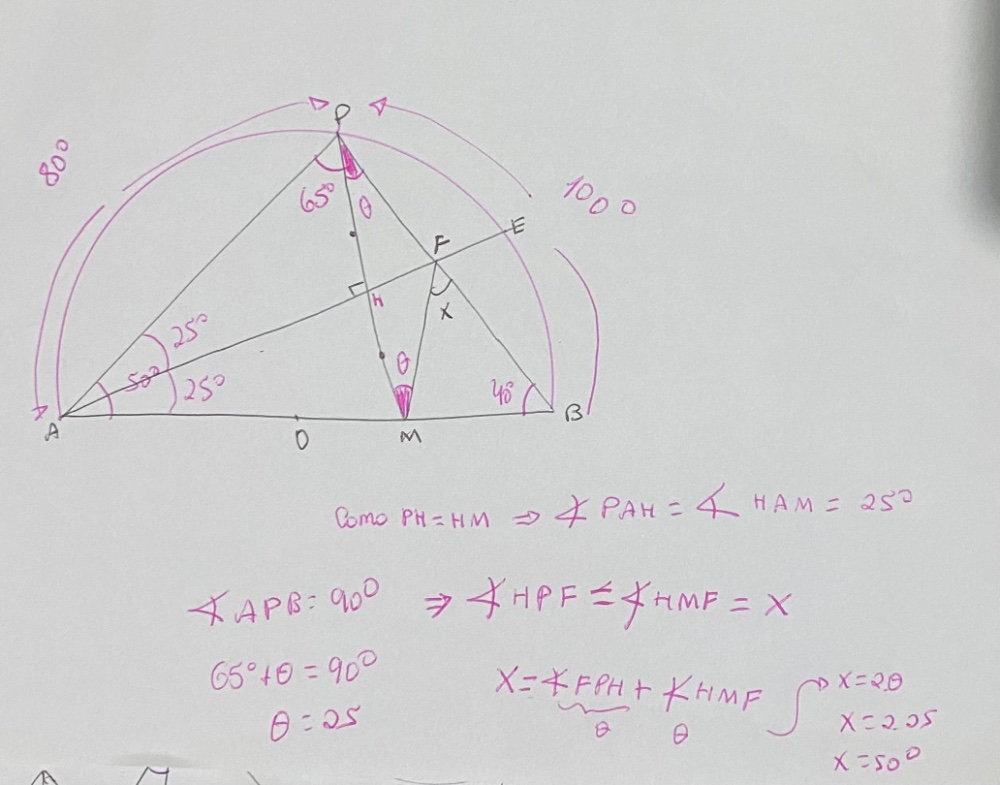 P
80°
100°
65°
θ
E
F
H
X
25°
50°
25°
θ
40°
A
O
M
B
Como PH = HM ⇒ ∡ PAH = ∡ HAM = 25°
∡ APB = 90° ⇒ ∡ HPF = ∡ HMF = X
65° + θ = 90°
θ = 25
X = ∡ FPH + ∡ HMF
θ θ
X = 2θ
X = 2.25
X = 50°